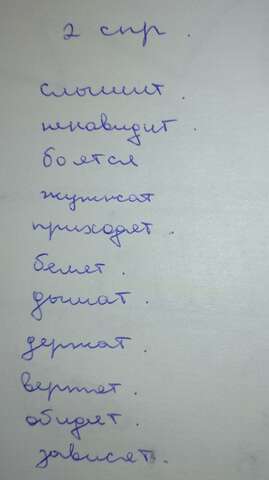 2 спр.
слышит.
ненавидит.
боятся
жужжат
приходят.
белят.
дышат.
держат.
вертят.
обидят.
зависят.